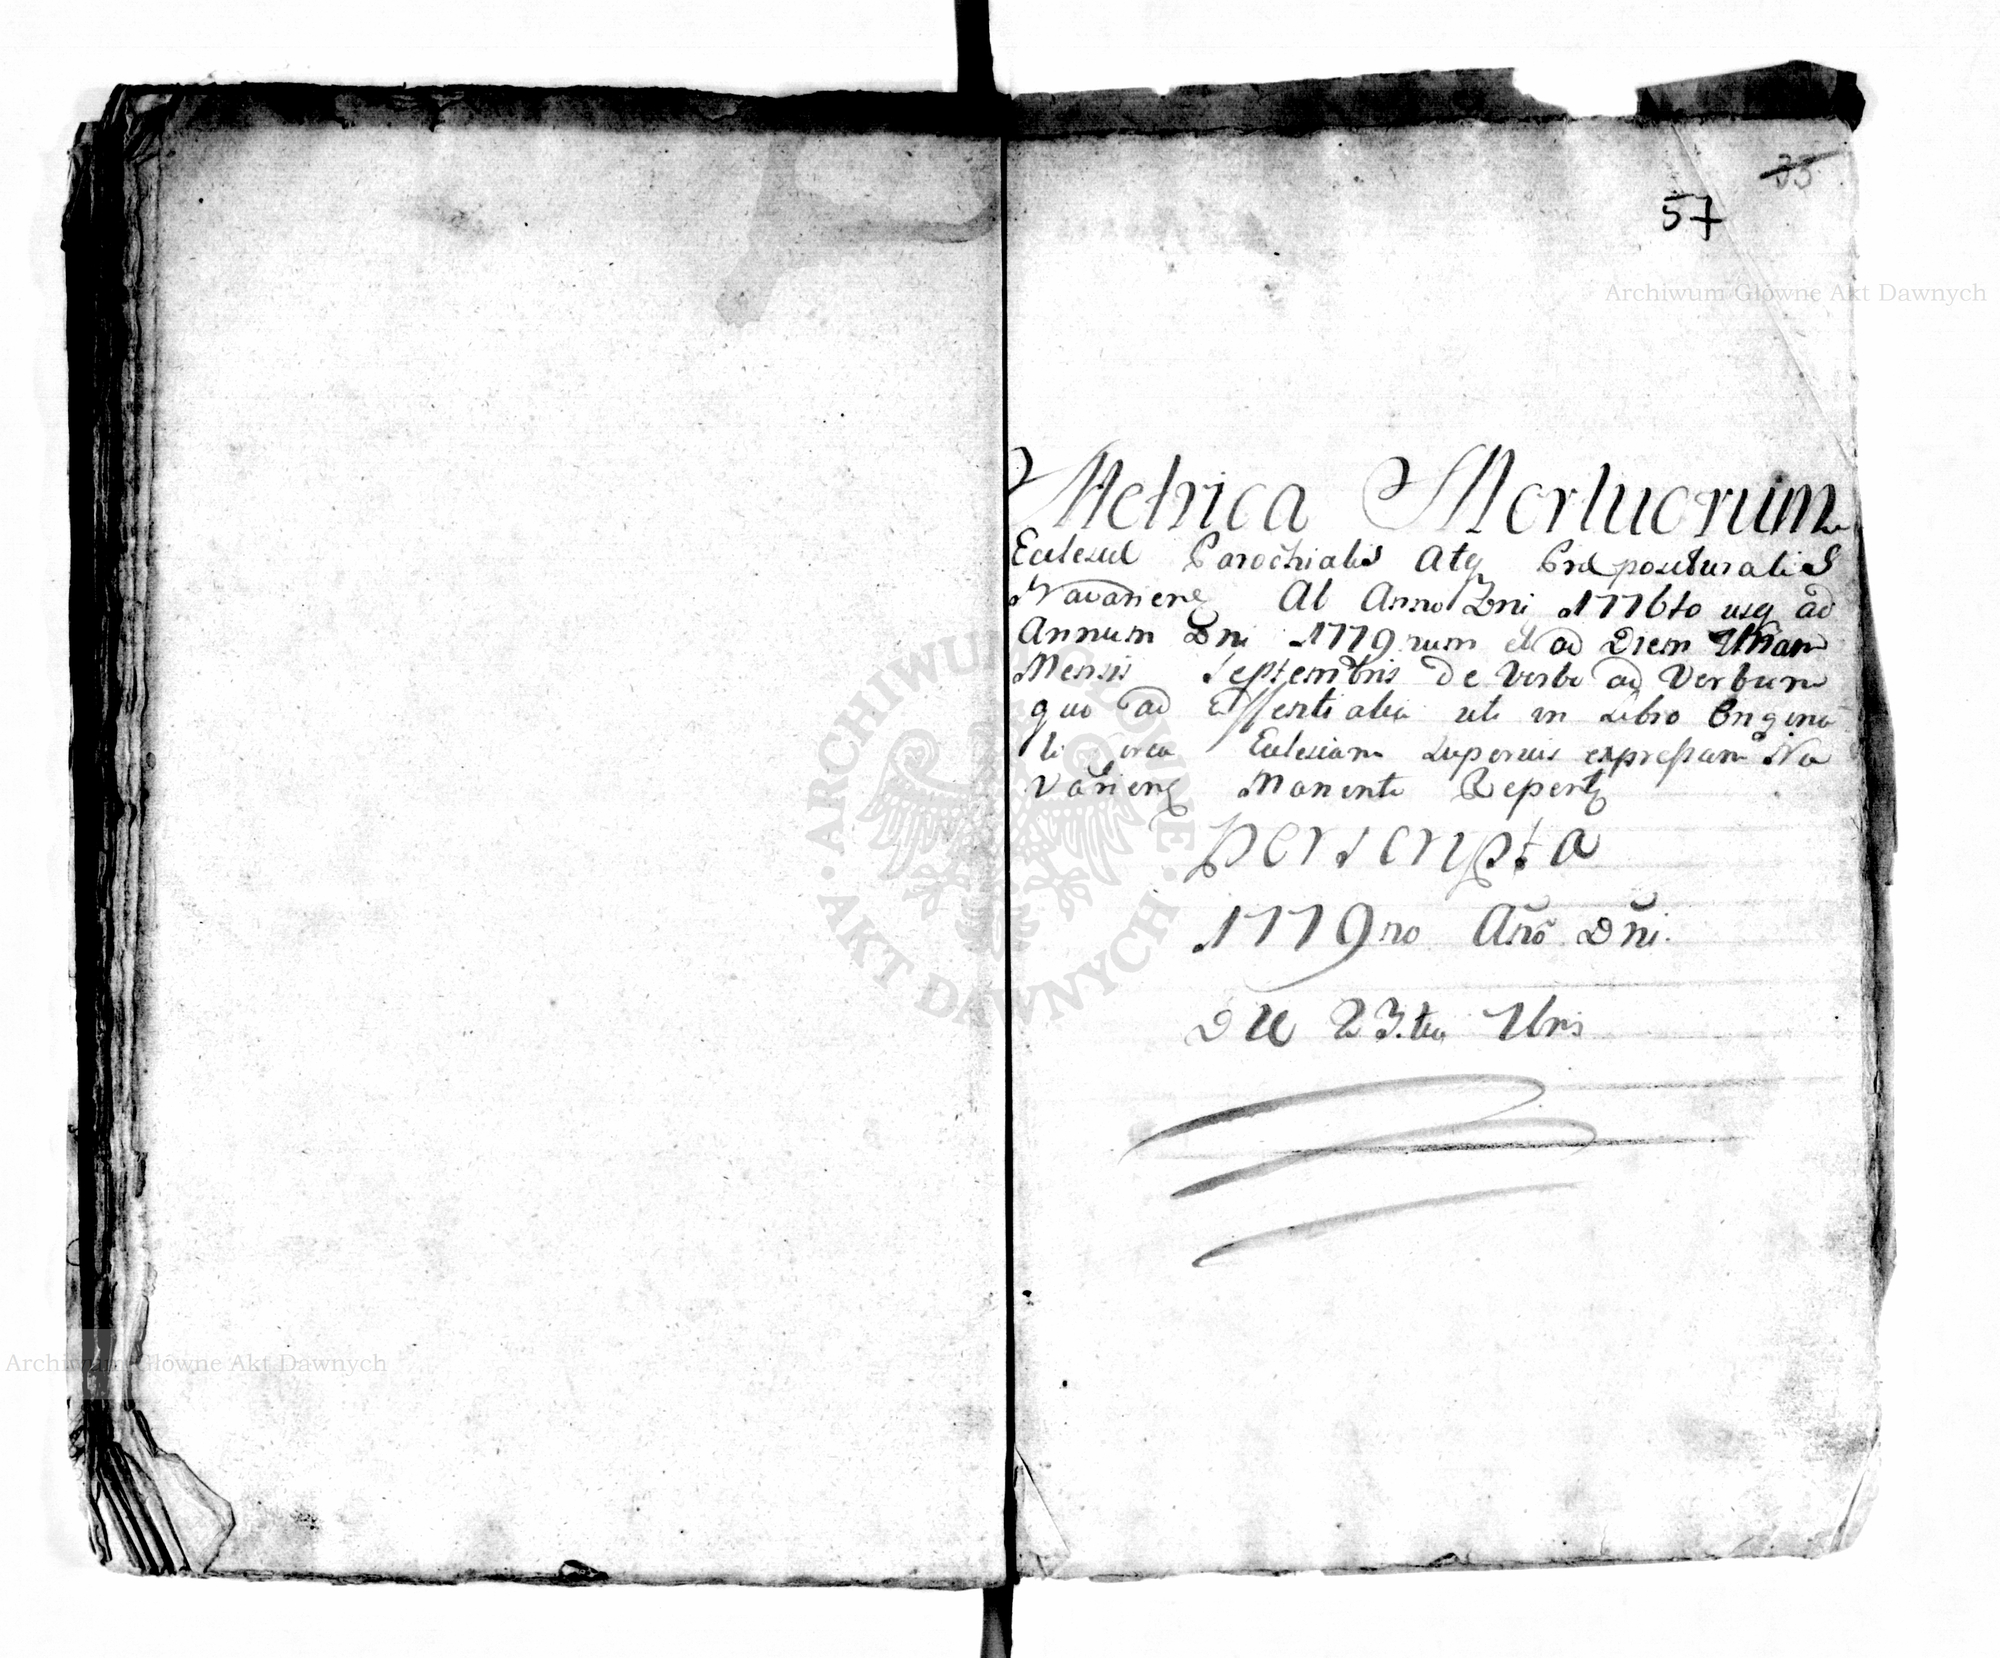 35
57
Archiwum Główne Akt Dawnych
Metrica Mortuorum
Ecclesiæ Parochialis Atq Præposituralis
Navarienẹ Ab Anno Dni 1776to usq ad
Annum Dni 1779num et ad Diem
Mensis Septembris de Verbo ad Verbum
quo ad Essentialia uti in Libro Origina
li circa Ecclesiam superius expressam Na
varienẹ Manente
perscripta
1779no Año Dñi.
Die 23.tia 7bris
ARCHIWUM GŁÓWNE
AKT DAWNYCH
Archiwum Główne Akt Dawnych